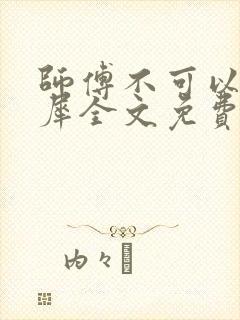 師傅不可以
犀全文免費
内々